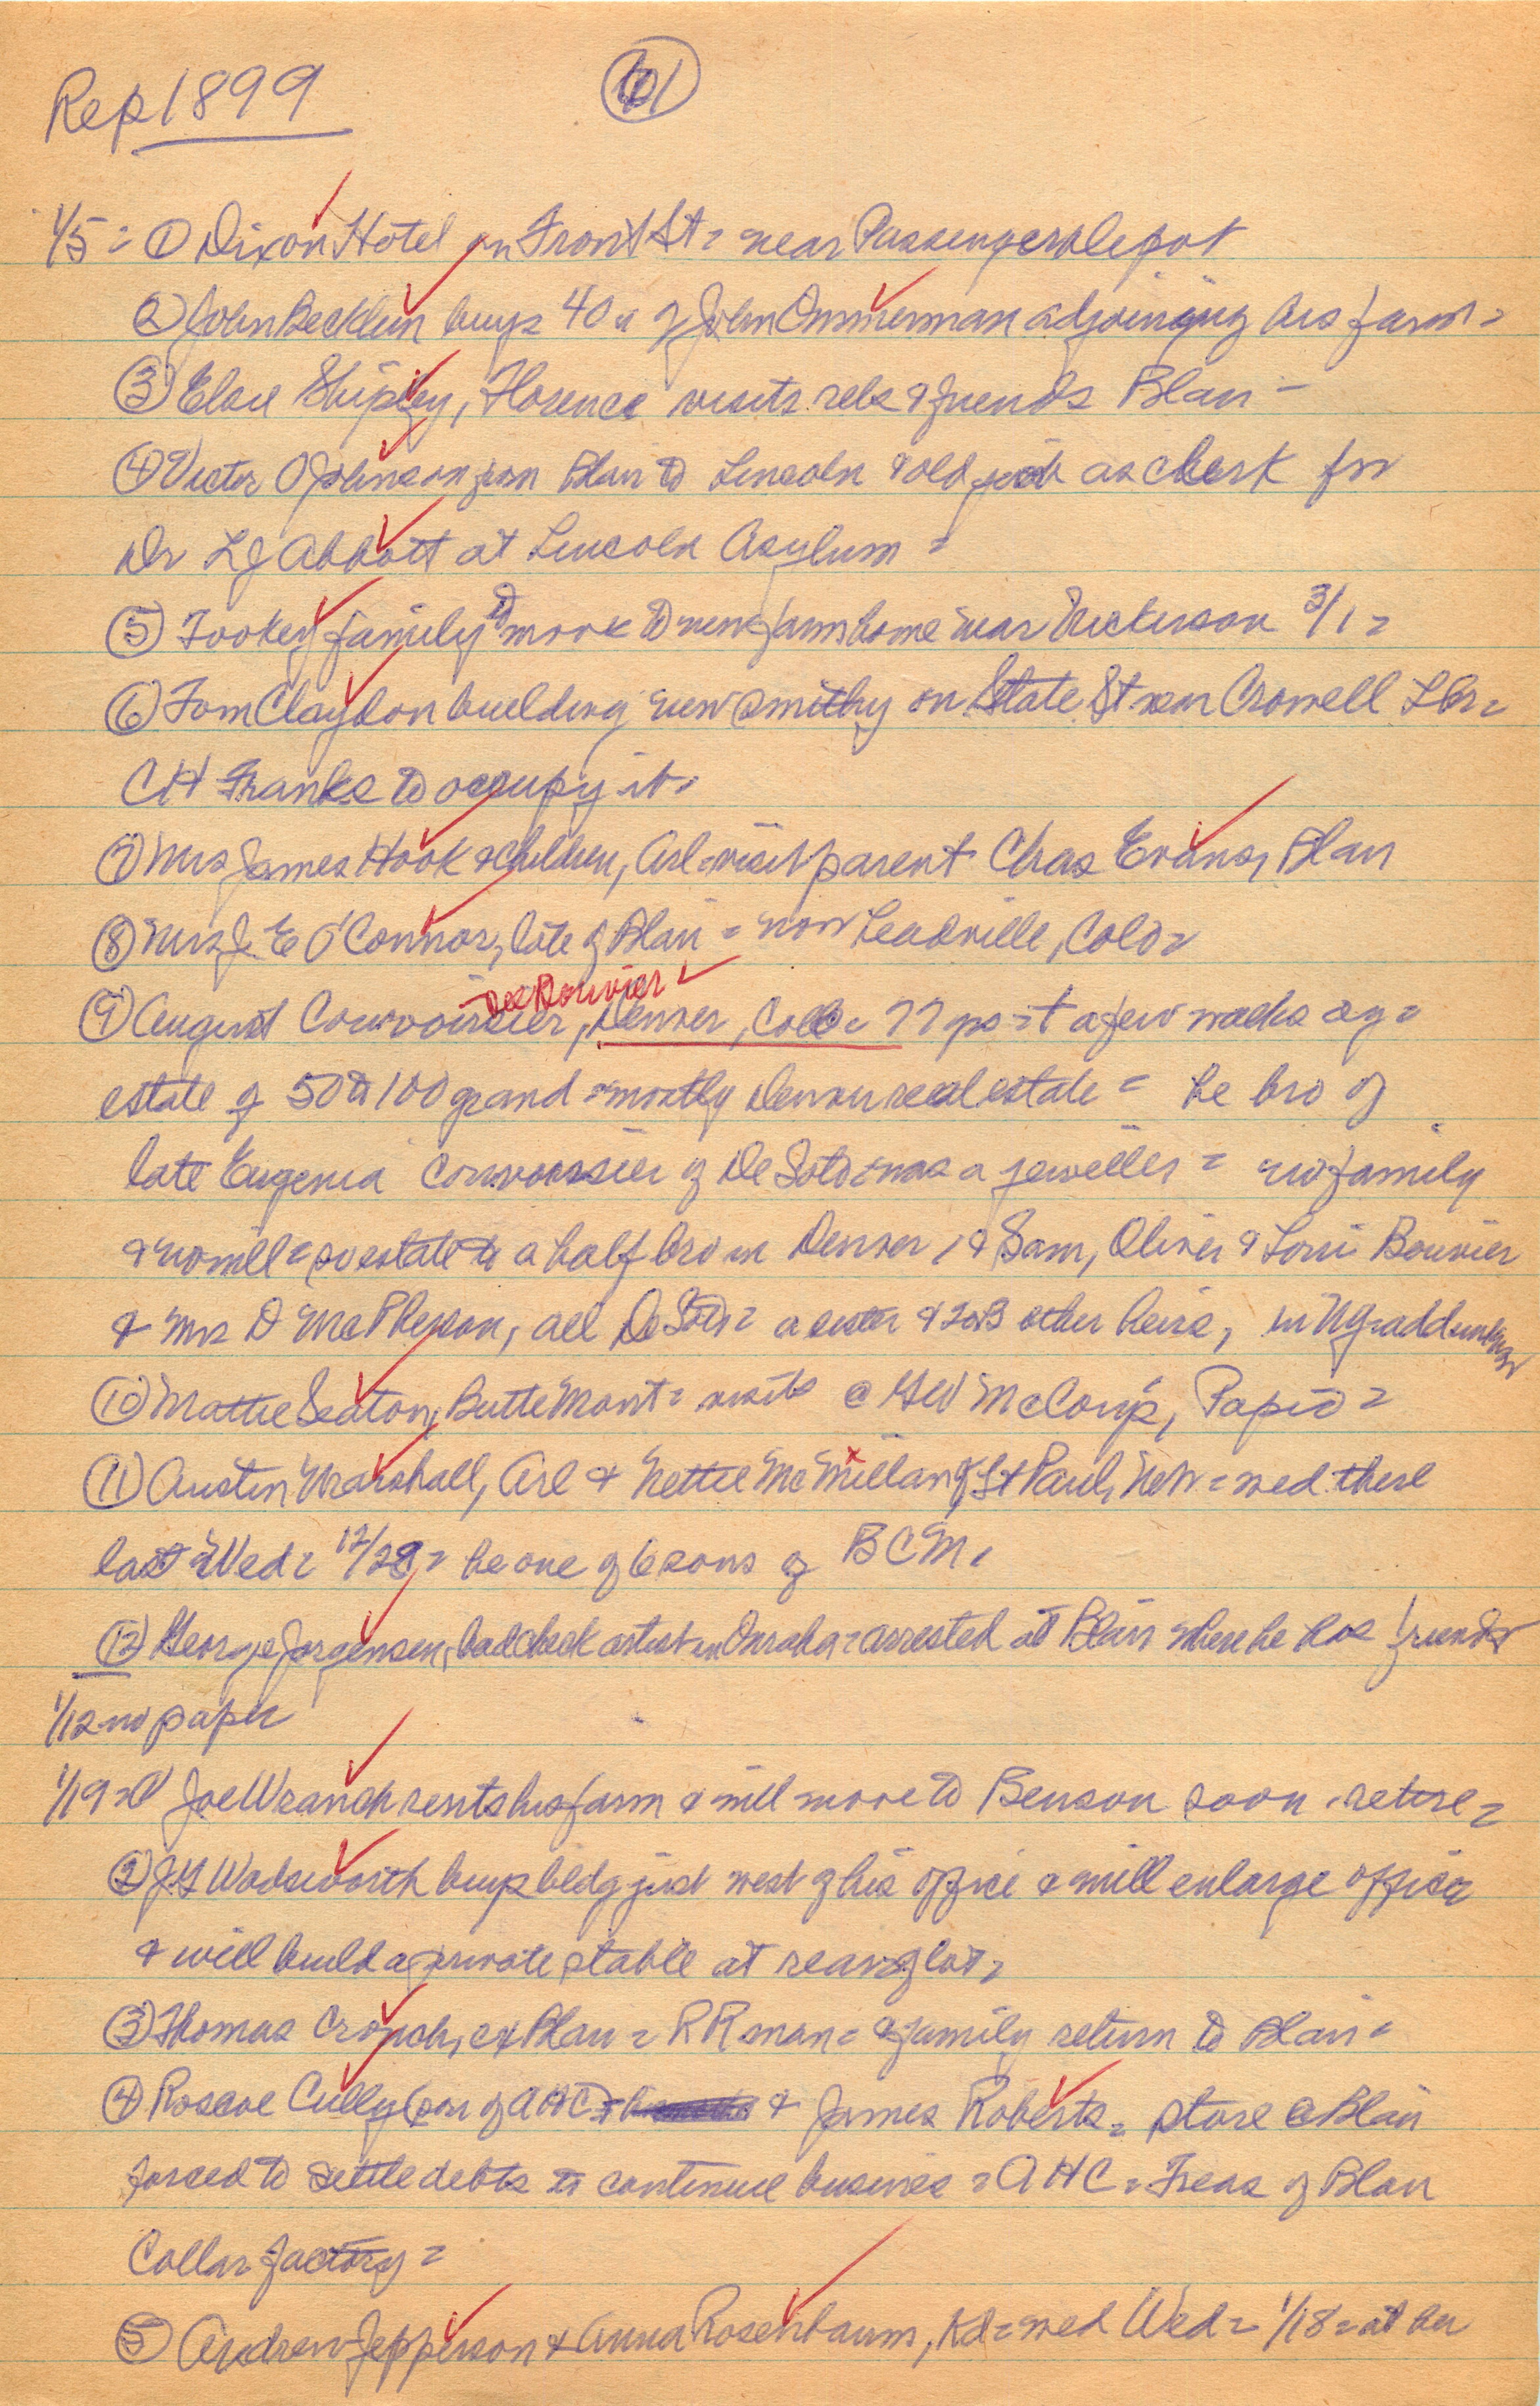 Rep 1899
1/5 = ① Dixon Hotel on Front St = near Passenger depot
② John Becklun buys 40 a of John Ommerman adjoining his farm =
③ Elsie Shipley, Florence visits rels & friends Blair -
④ Victor O Johnson from Blair to Lincoln & old job as clerk for
Dr L J Abbott at Lincoln Asylum =
⑤ Tookey family to move to new farm home near Nickerson 3/1 =
⑥ Tom Claydon building new smithy on State St near Crowell Lbr =
CH Franks to occupy it.
⑦ Mrs James Hook & children, Arl = visit parent Chas Evans, Blair
⑧ Mrs J E O'Connor, late of Blair = now Leadville, Colo =
See Bouvier
⑨ August Courvoisier, Denver, Colo = 77 yrs = † a few weeks ago =
estate of 50 to 100 grand = mostly Denver real estate = he bro of
late Eugenia Courvoisier of De Soto = was a jeweller = no family
& no will = so estate to a half bro in Denver, & Sam, Oliver & Loui Bouvier
& Mrs D McPherson, all De Soto = a sister & 2 or 3 other heirs, in NY = add
⑩ Mattie Seaton, Butte Mont = visits @ GW McCoy's, Papio =
⑪ Austin Marshall, Arl & Nettie McMillan of St Paul, Neb = wed there
last Wed = 12/28 = he one of 6 sons of BCM.
⑫ George Jorgensen, bad check artist in Omaha = arrested at Blair where he has friends
1/12 no paper
1/19 = ① Joe Wranch rents his farm & will move to Benson soon = retire =
② J G Wadsworth buys bldg just west of his office & will enlarge office
& will build a private stable at rear of lot =
③ Thomas Crouch, ex Blair = RR man = & family return to Blair =
④ Roscoe Cully (son of AHC) & James Roberts = store @ Blair
forced to settle debts to continue business = AHC = Treas of Blair
Collar factory =
⑤ Andrew Jepperson & Anna Rosenbaum, Kd = wed Wed = 1/18 = at her